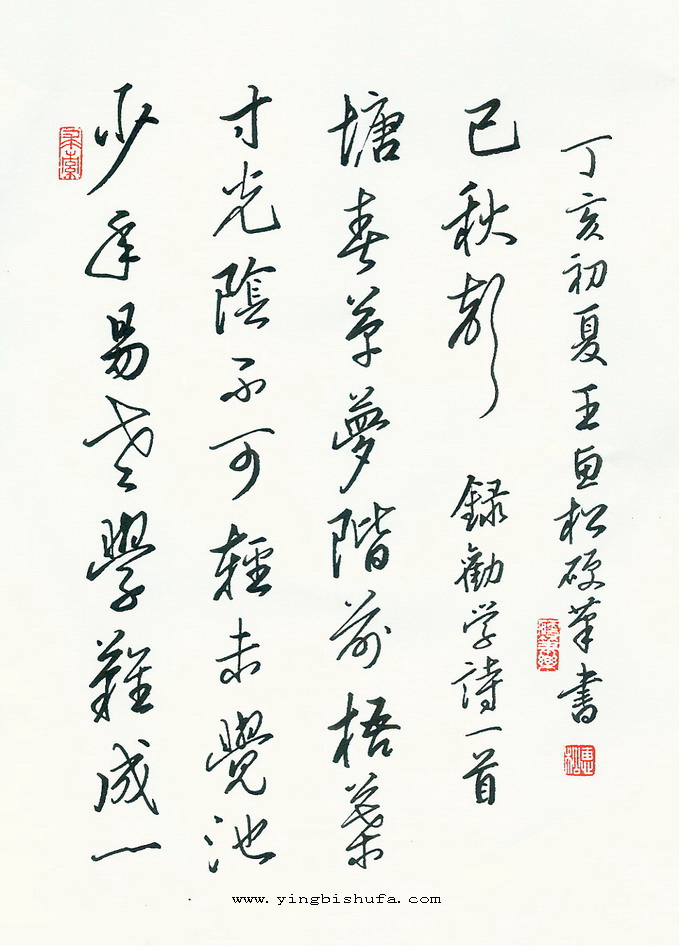 少年易老學難成一
寸光陰不可輕未覺池
塘春草夢階前梧葉
已秋聲 録勸学詩一首
丁亥初夏王惠松硬筆書
www.yingbishufa.com